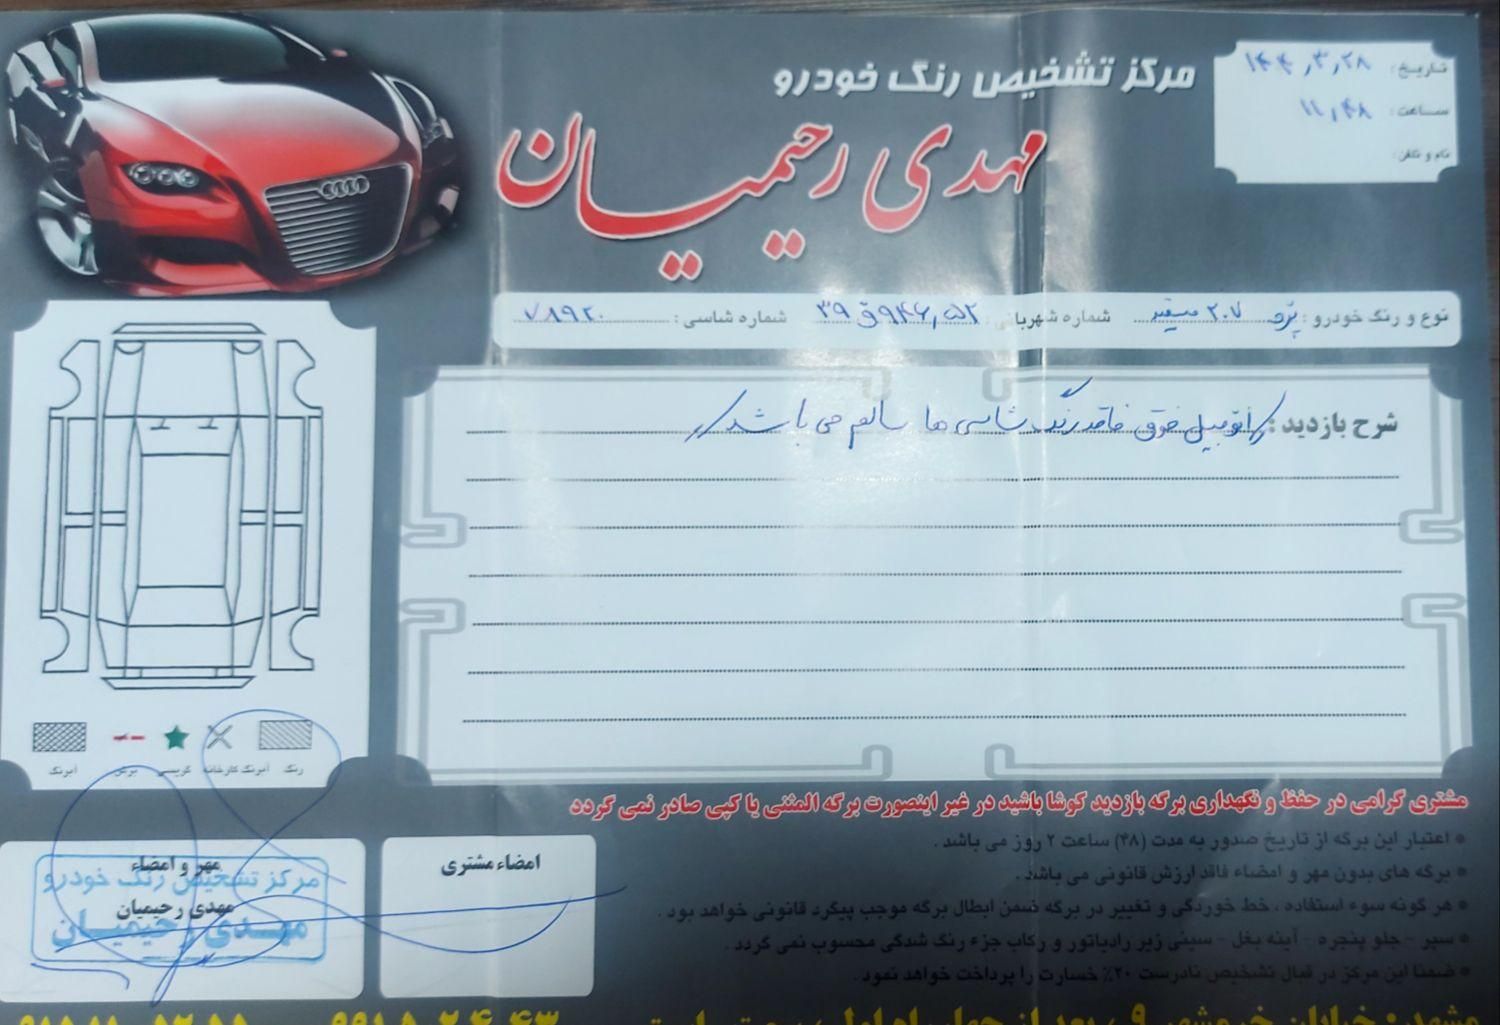 مرکز تشخیص رنگ خودرو
مهدی رحیمیان
تاریخ: ۱۴۴٫۳٫۲۸
ساعت: ۱۱٫۴۸
نام و تلفن:
نوع و رنگ خودرو: پژو ۲۰۷ سفید شماره شهربانی: ۵۲٫۹۴۶ق۳۹ شماره شاسی: ۷۸۹۲۰
شرح بازدید: اتومبیل فوق فاقد رنگ شاسی ها سالم می باشد
رنگ آبرنگ کارخانه گریسی برش آبرنگ
مشتری گرامی در حفظ و نگهداری برگه بازدید کوشا باشید در غیر اینصورت برگه المثنی یا کپی صادر نمی گردد
* اعتبار این برگه از تاریخ صدور به مدت (۴۸) ساعت ۲ روز می باشد .
* برگه های بدون مهر و امضاء فاقد ارزش قانونی می باشد .
* هر گونه سوء استفاده ، خط خوردگی و تغییر در برگه ضمن ابطال برگه موجب پیگرد قانونی خواهد بود .
* سپر - جلو پنجره - آینه بغل - سینی زیر رادیاتور و رکاب جزء رنگ شدگی محسوب نمی گردد .
* ضمنا این مرکز در قبال تشخیص نادرست ۲۰٪ خسارت را پرداخت خواهد نمود .
امضاء مشتری
مهر و امضاء
مهدی رحیمیان
مرکز تشخیص رنگ خودرو
مهدی رحیمیان